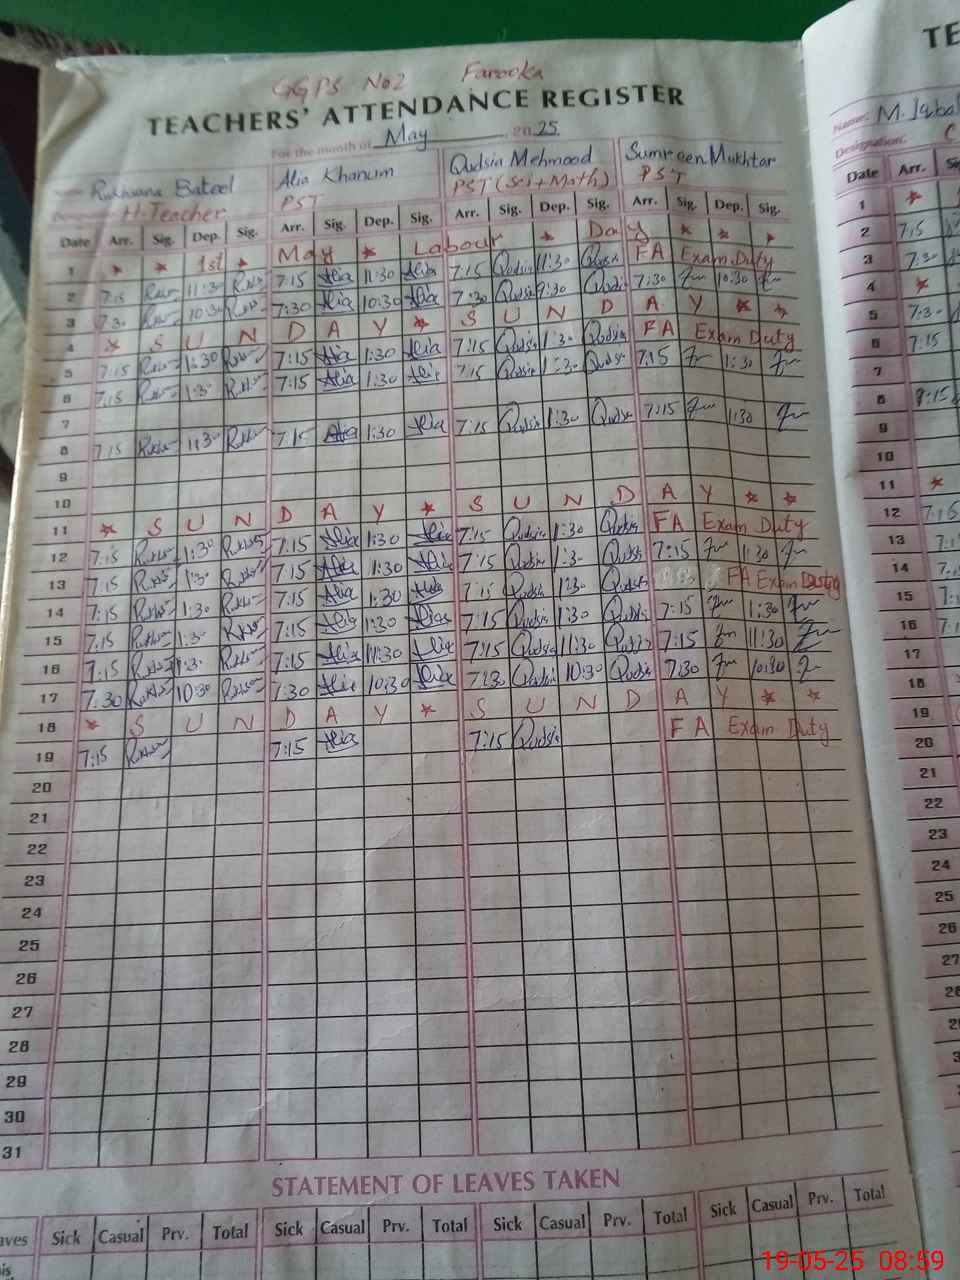 GGPS No2 Farooka
TEACHERS' ATTENDANCE REGISTER
For the month of May 2025
Rukhsana Bateel Alia Khanum Qudsia Mehmood Sumreen Mukhtar
H.Teacher PST PST (Sci+Math) PST
Date Arr. Sig. Dep. Sig. Arr. Sig. Dep. Sig. Arr. Sig. Dep. Sig. Arr. Sig. Dep. Sig.
1 * * 1st * May * Labour * Day * * *
2 7:15 11:30 7:15 Alia 11:30 Alia 7:15 Qudsia 11:30 Qudsia FA Exam Duty
3 7:30 10:30 7:30 Alia 10:30 Alia 7:30 Qudsia 9:30 Qudsia 7:30 10:30
4 * S U N D A Y * S U N D A Y * *
5 7:15 1:30 7:15 Alia 1:30 Alia 7:15 Qudsia 1:30 Qudsia FA Exam Duty
6 7:15 1:30 7:15 Alia 1:30 Alia 7:15 Qudsia 1:30 Qudsia 7:15 1:30
7
8 7:15 1:30 7:15 Alia 1:30 Alia 7:15 Qudsia 1:30 Qudsia 7:15 1:30
9
10
11 * S U N D A Y * S U N D A Y * *
12 7:15 1:30 7:15 Alia 1:30 Alia 7:15 Qudsia 1:30 Qudsia FA Exam Duty
13 7:15 1:30 7:15 Alia 1:30 Alia 7:15 Qudsia 1:30 Qudsia 7:15 1:30
14 7:15 1:30 7:15 Alia 1:30 Alia 7:15 Qudsia 1:30 Qudsia FA Exam Duty
15 7:15 1:30 7:15 Alia 1:30 Alia 7:15 Qudsia 1:30 Qudsia 7:15 1:30
16 7:15 11:30 7:15 Alia 11:30 Alia 7:15 Qudsia 11:30 Qudsia 7:15 11:30
17 7:30 10:30 7:30 Alia 10:30 Alia 7:30 Qudsia 10:30 Qudsia 7:30 10:30
18 * S U N D A Y * S U N D A Y * *
19 7:15 7:15 Alia 7:15 Qudsia FA Exam Duty
20
21
22
23
24
25
26
27
28
29
30
31
STATEMENT OF LEAVES TAKEN
Sick Casual Prv. Total Sick Casual Prv. Total Sick Casual Prv. Total Sick Casual Prv. Total
TE
Name: M. Iqbal
Designation: C
Date Arr.
1 *
2 7:15
3 7:30
4 *
5 7:30
6 7:15
7
8 7:15
9
10
11 *
12 7:15
13
14
15
16
17
18
19
20
21
22
23
24
25
26
27
28
19-05-25 08:59